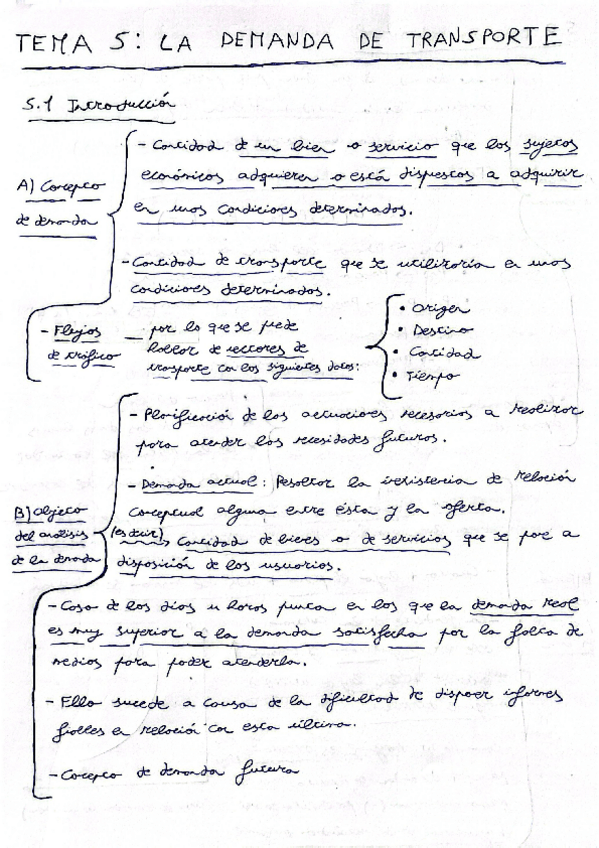 TEMA 5: LA DEMANDA DE TRANSPORTE
5.1 Introducción
A) Concepto
de demanda
- Cantidad de un bien o servicio que los sujetos
económicos adquieren o está dispuestos a adquirir
en unas condiciones determinadas.
- Cantidad de transporte que se utilizaría en unas
condiciones determinadas.
- Flujos
de tráfico
por lo que se puede
hablar de vectores de
transporte con los siguientes datos:
• Origen
• Destino
• Cantidad
• Tiempo
B) Objeto
del análisis
de la demanda
- Planificación de las actuaciones necesarias a realizar
para atender las necesidades futuras.
- Demanda actual: Resaltar la inexistencia de relación
conceptual alguna entre ésta y la oferta.
(es decir) Cantidad de bienes o de servicios que se pone a
disposición de los usuarios.
- Caso de los días u horas punta en los que la demanda real
es muy superior a la demanda satisfecha por la falta de
medios para poder atenderla.
- Ello sucede a causa de la dificultad de disponer informes
fiables en relación con esta última.
- Concepto de demanda futura